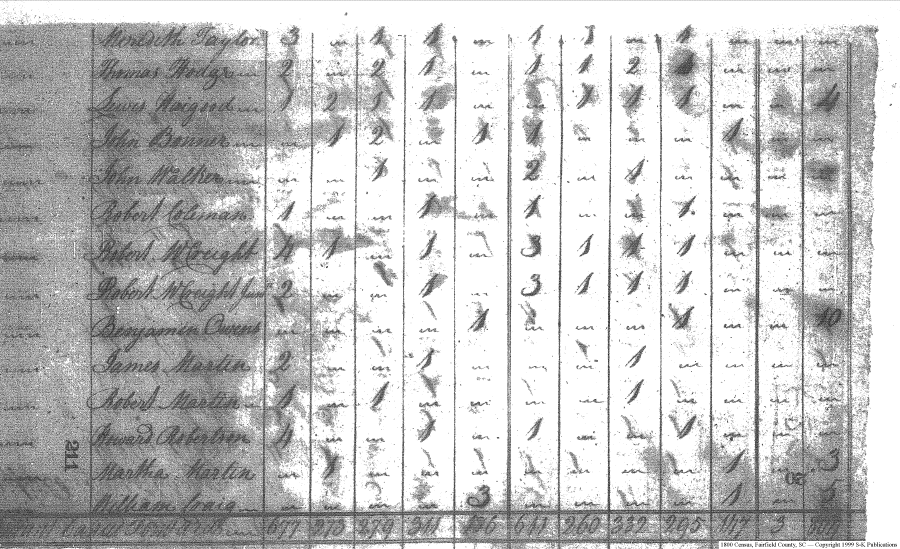 Meredith Taylor 3 " 1 1 " 1 1 " 1 " " "
Thomas Hodge 2 " 2 1 " 1 1 2 1 " " "
Lewis Haigood 1 2 1 1 " " 1 1 1 " " 4
John Bonner " 1 2 " 1 1 " " " 1 " "
John Walker " " 1 " " 2 " 1 " " "
Robert Coleman 1 " " 1 " 1 " " 1 " " "
Robert McCreight 4 1 " 1 " 3 1 1 1 " " "
Robert McCreight Junr 2 " " 1 " 3 1 1 1 " " "
Benjamin Owens " " " " 1 " " 1 " " 10
James Martin 2 " " 1 " " " 1 " " " "
Robert Martin 1 " 1 " " " " " " " "
Howard Robertson 4 " " 1 " 1 " " 1 " " "
211
Martha Martin " 1 " " " " " " " 1 " 3
William Craig " " " " 3 " " " " 1 " 5
677 273 279 341 641 260 332 205 3
1800 Census, Fairfield County, SC — Copyright 1999 S-K Publications